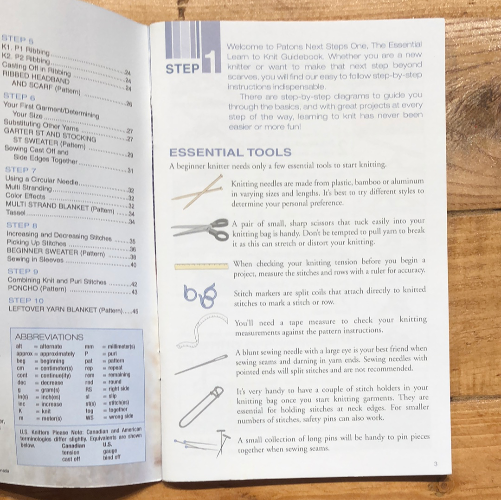 STEP 5
K1, P1 Ribbing
K2, P2 Ribbing
Casting Off in Ribbing ....24
RIBBED HEADBAND ....24
AND SCARF (Pattern) ....26
STEP 6
Your First Garment/Determining
Your Size ....27
Substituting Other Yarns ....27
GARTER ST AND STOCKING
ST SWEATER (Pattern)
Sewing Cast Off and
Side Edges Together ....31
STEP 7
Using a Circular Needle ....32
Multi Stranding ....32
Color Effects
MULTI STRAND BLANKET (Pattern) ....34
Tassel ....34
STEP 8
Increasing and Decreasing Stitches ....35
Picking Up Stitches ....36
BEGINNER SWEATER (Pattern) ....38
Sewing in Sleeves ....40
STEP 9
Combining Knit and Purl Stitches ....42
PONCHO (Pattern) ....43
STEP 10
LEFTOVER YARN BLANKET (Pattern)
ABBREVIATIONS
alt = alternate mm = millimeter(s)
approx = approximately P = purl
beg = beginning pat = pattern
cm = centimeter(s) rep = repeat
cont = continue(ity) rem = remaining
dec = decrease rnd = round
g = gram(s) RS = right side
in(s) = inch(es) sl = slip
inc = increase st(s) = stitch(es)
K = knit tog = together
m = meter(s) WS = wrong side
U.S. Knitters Please Note: Canadian and American
terminologies differ slightly. Equivalents are shown
below. Canadian U.S.
tension gauge
cast off bind off
STEP 1
Welcome to Patons Next Steps One, The Essential
Learn to Knit Guidebook. Whether you are a new
knitter or want to make that next step beyond
scarves, you will find our easy to follow step-by-step
instructions indispensable.
There are step-by-step diagrams to guide you
through the basics, and with great projects at every
step of the way, learning to knit has never been
easier or more fun!
ESSENTIAL TOOLS
A beginner knitter needs only a few essential tools to start knitting.
Knitting needles are made from plastic, bamboo or aluminum
in varying sizes and lengths. It's best to try different styles to
determine your personal preference.
A pair of small, sharp scissors that tuck easily into your
knitting bag is handy. Don't be tempted to pull yarn to break
it as this can stretch or distort your knitting.
When checking your knitting tension before you begin a
project, measure the stitches and rows with a ruler for accuracy.
Stitch markers are split coils that attach directly to knitted
stitches to mark a stitch or row.
You'll need a tape measure to check your knitting
measurements against the pattern instructions.
A blunt sewing needle with a large eye is your best friend when
sewing seams and darning in yarn ends. Sewing needles with
pointed ends will split stitches and are not recommended.
It's very handy to have a couple of stitch holders in your
knitting bag once you start knitting garments. They are
essential for holding stitches at neck edges. For smaller
numbers of stitches, safety pins can also work.
A small collection of long pins will be handy to pin pieces
together when sewing seams.